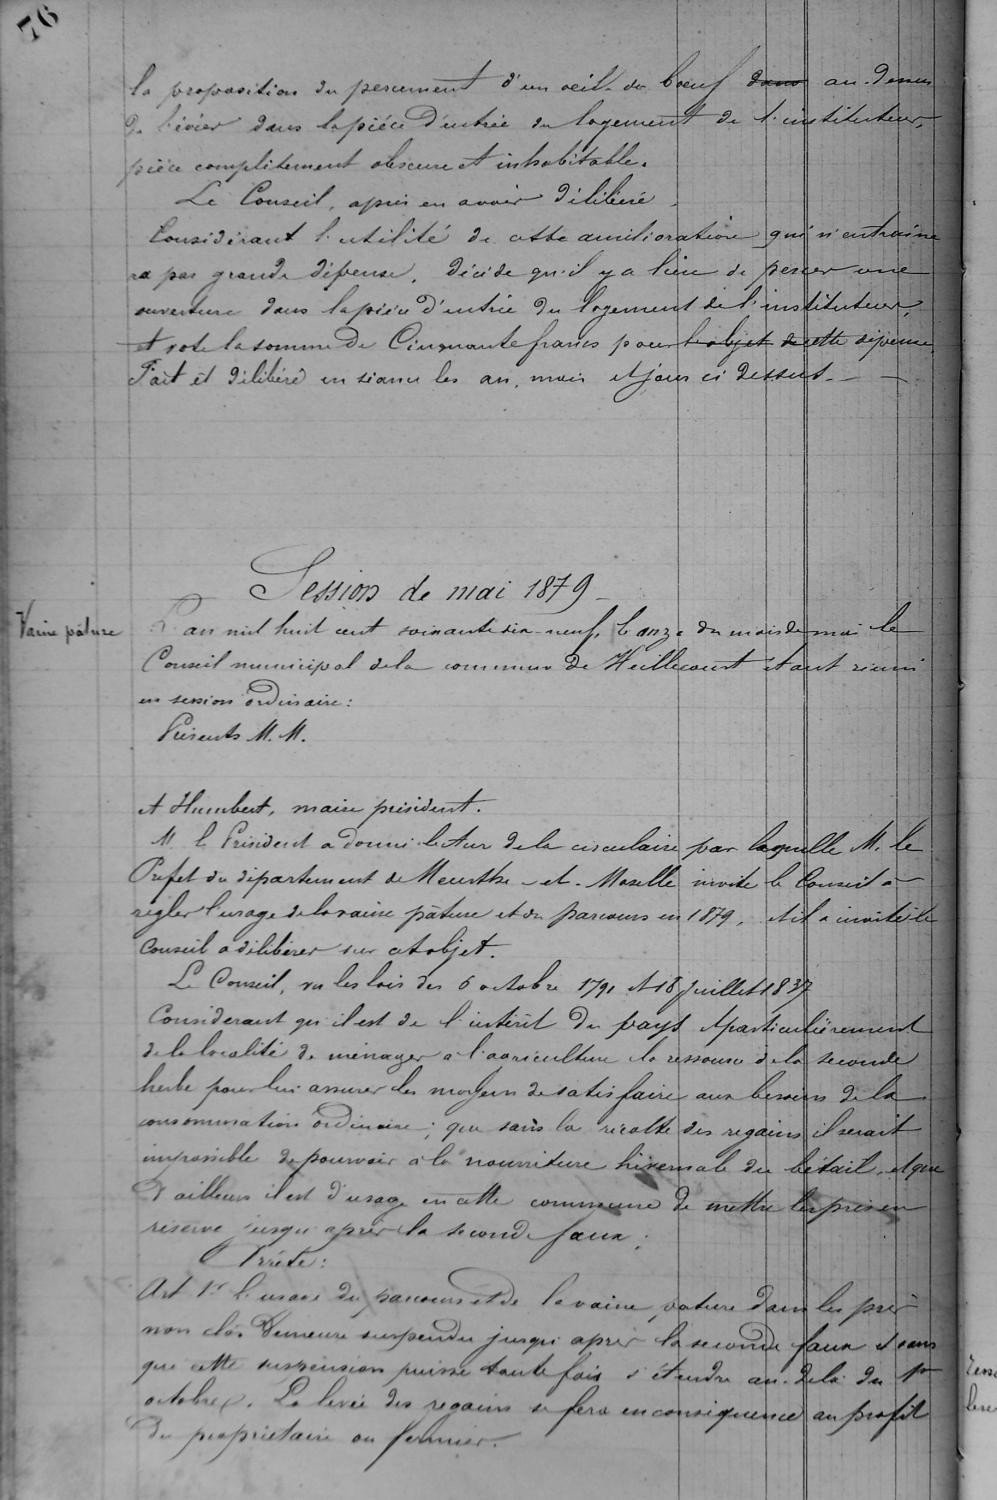 76
la proposition du percement d'un oeil-de boeuf dans au-dessus
de l'évier dans la pièce d'entrée du logement de l'instituteur,
pièce complètement obscure et inhabitable.
Le Conseil, après en avoir délibéré,
Considérant l'utilité de cette amélioration qui n'entraine
ra pas grande dépense, décide qu'il y a lieu de percer une
ouverture dans la pièce d'entrée du logement de l'instituteur,
et vote la somme de Cinquante francs pour l'objet de cette dépense.
Fait et délibéré en séance les an, mois et jour ci dessus.
Session de mai 1879
Vaine pâture
L'an mil huit cent soixante dix-neuf, le onze du mois de mai le
Conseil municipal de la commune de Heillecourt étant réuni
en session ordinaire:
Présents M.M.
et Humbert, maire président.
M. le Président a donné lecture de la circulaire par laquelle M. le
Préfet du département de Meurthe-et-Moselle invite le Conseil à
régler l'usage de la vaine pâture et du parcours en 1879, et il a invité le
Conseil a délibérer sur cet objet.
Le Conseil, vu les lois des 6 octobre 1791 et 18 Juillet 1837
Considérant qu'il est de l'intérêt du pays et particulièrement
de la localité de ménager à l'agriculture la ressource de la seconde
herbe pour lui assurer les moyens de satisfaire aux besoins de la
consommation ordinaire; que sans la récolte des regains il serait
impossible de pourvoir à la nourriture hivernale du bétail, et que
d'ailleurs il est d'usage en cette commune de mettre les prés en
réserve jusqu'après la seconde faux;
Arrête:
Art 1er L'usage du parcours et de la vaine pature dans les prés
non clos demeure suspendu jusqu'après la seconde faux et sans
que cette suspension puisse toutefois s'étendre au-delà du 1er
octobre. La levée des regains se fera en conséquence au profit
du propriétaire ou fermier.